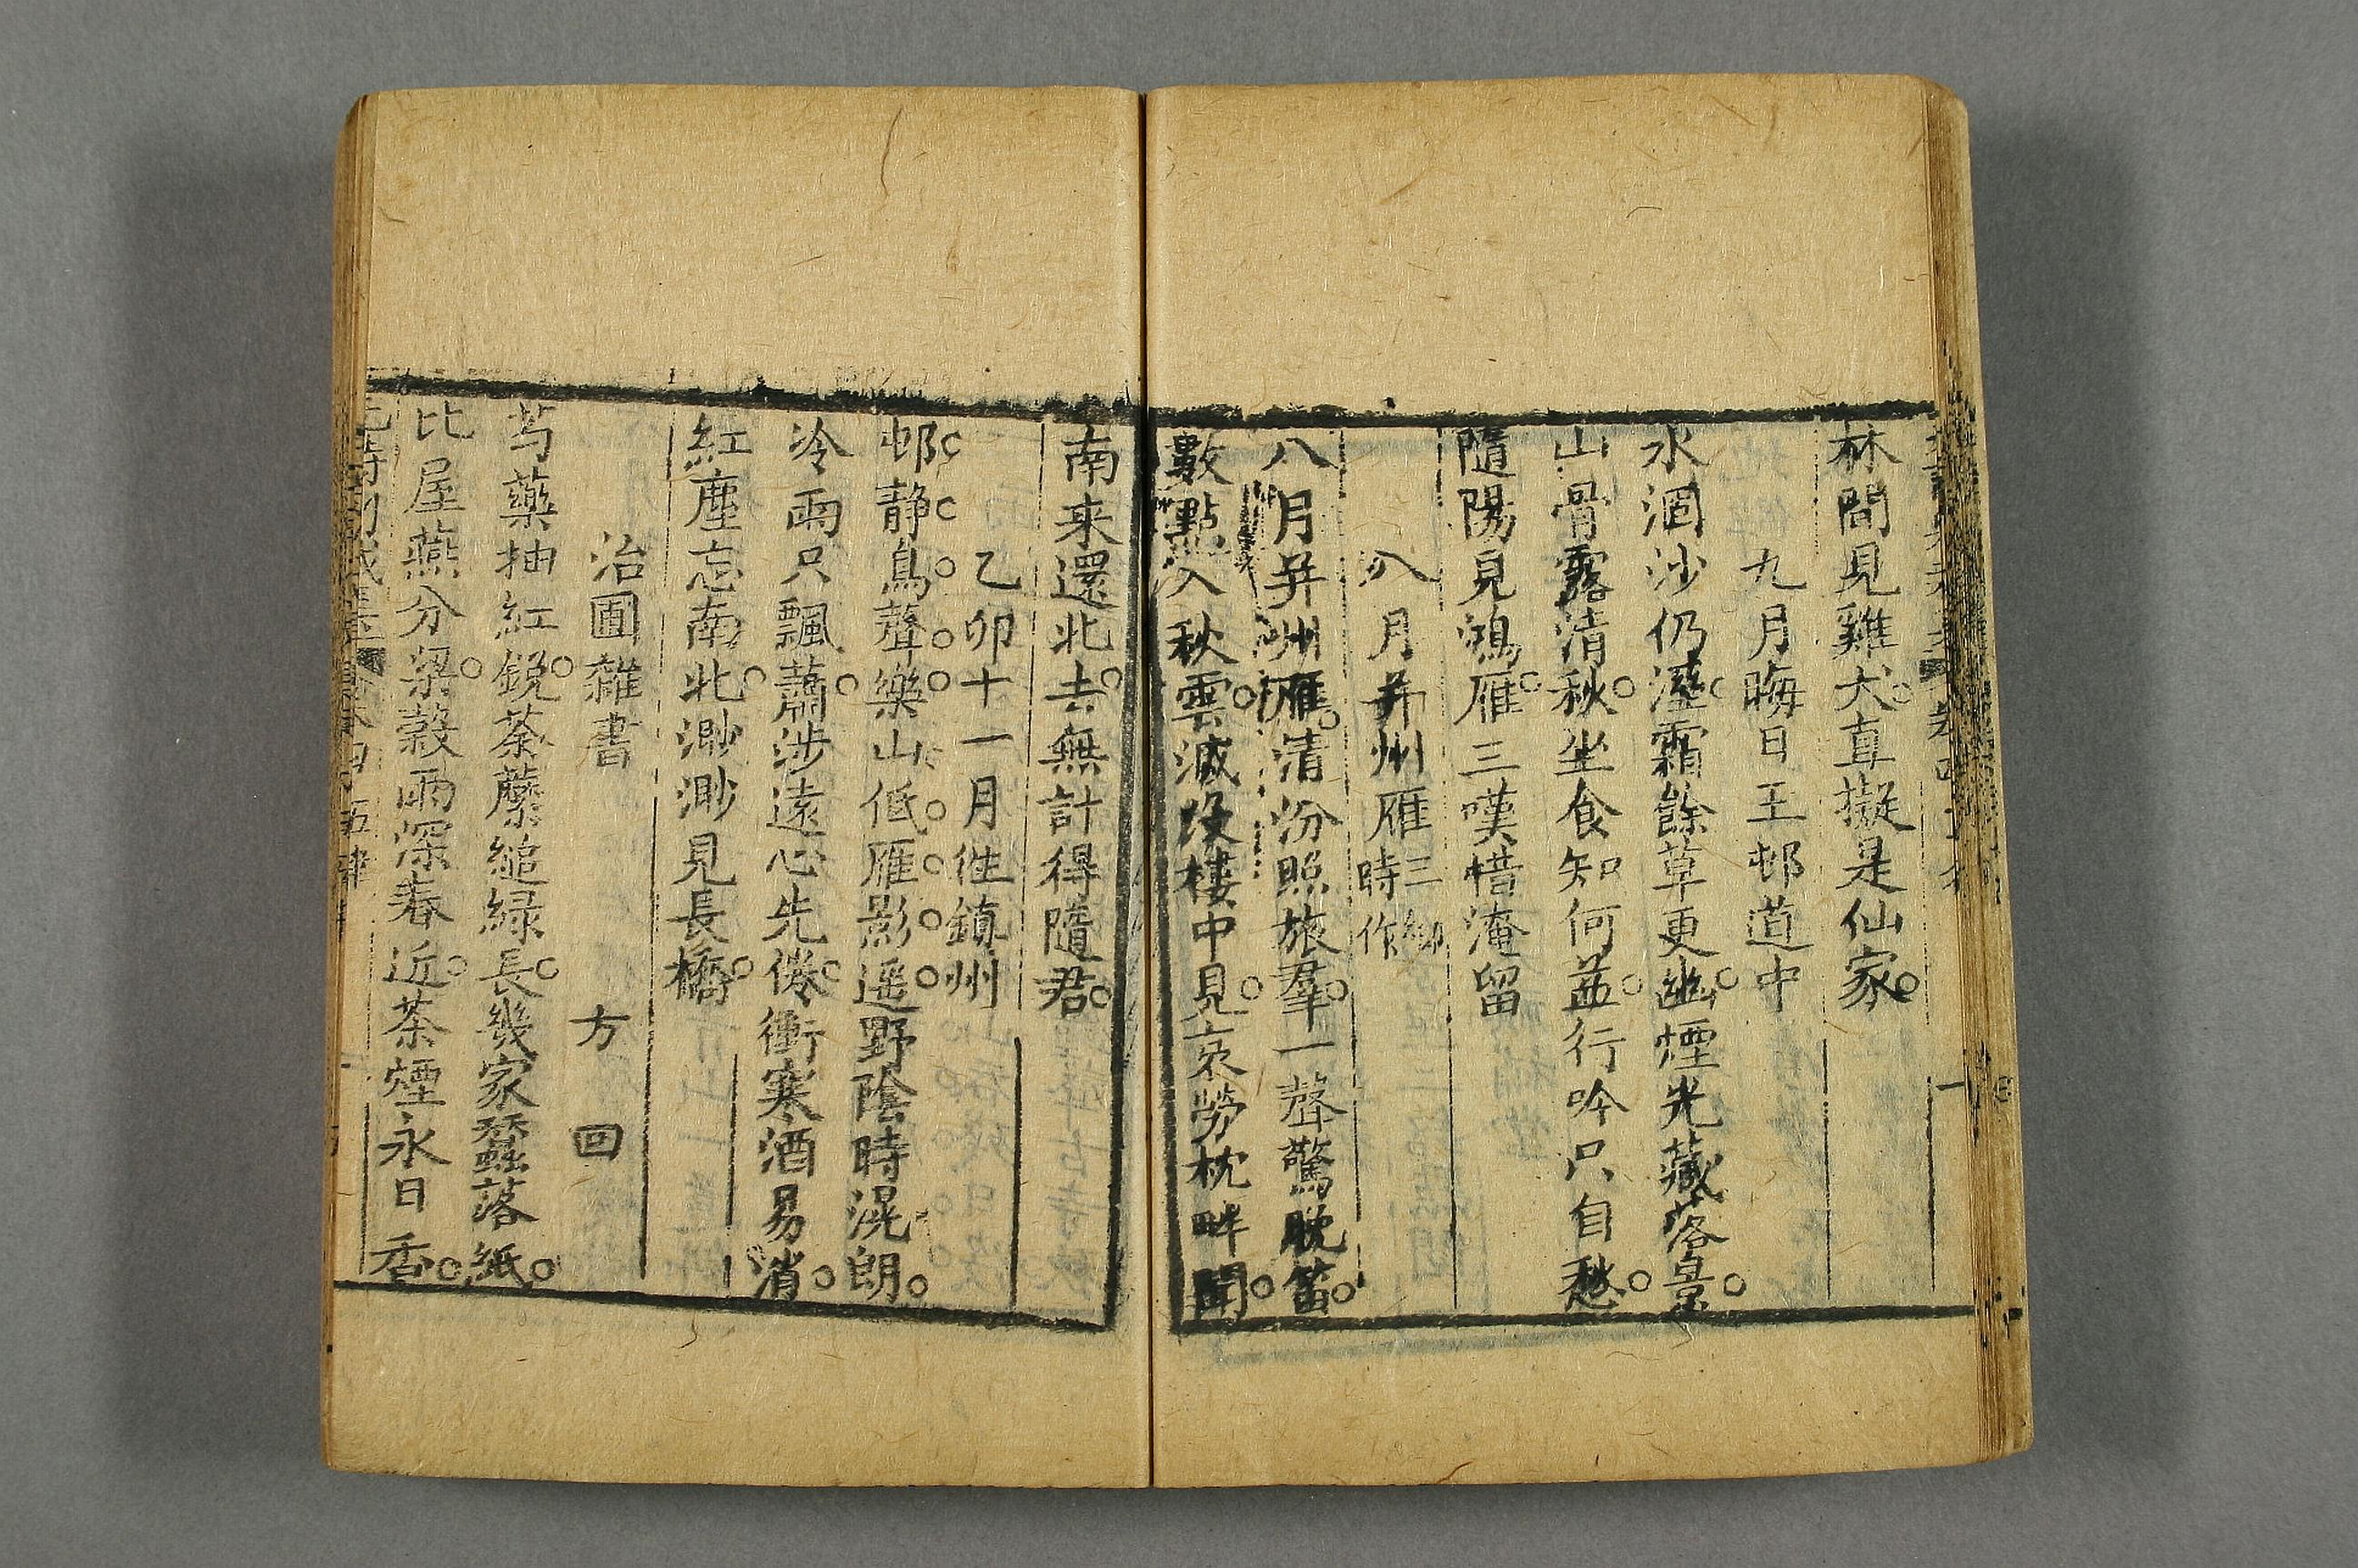 林間見雞犬直擬是仙家
九月晦日王邨道中
水涸沙仍溼霜餘草更幽煙光藏落景
山骨露清秋坐食知何益行吟只自愁
隨陽見鴻雁三嘆惜淹留
八月并州雁
八月并州雁清汾照旅羣一聲驚晚笛
數點入秋雲滅沒樓中見哀勞枕畔聞
南来還北去無計得隨君
乙卯十一月往鎮州
邨静鳥聲樂山低雁影遥野陰時滉朗
冷雨只飄蕭涉遠心先倦衝寒酒易消
紅塵忘南北渺渺見長橋
治圃雜書
方回
芍藥抽紅鋭荼蘼縋緑長幾家蠶落紙
比屋燕分梁穀雨深春近茶煙永日香